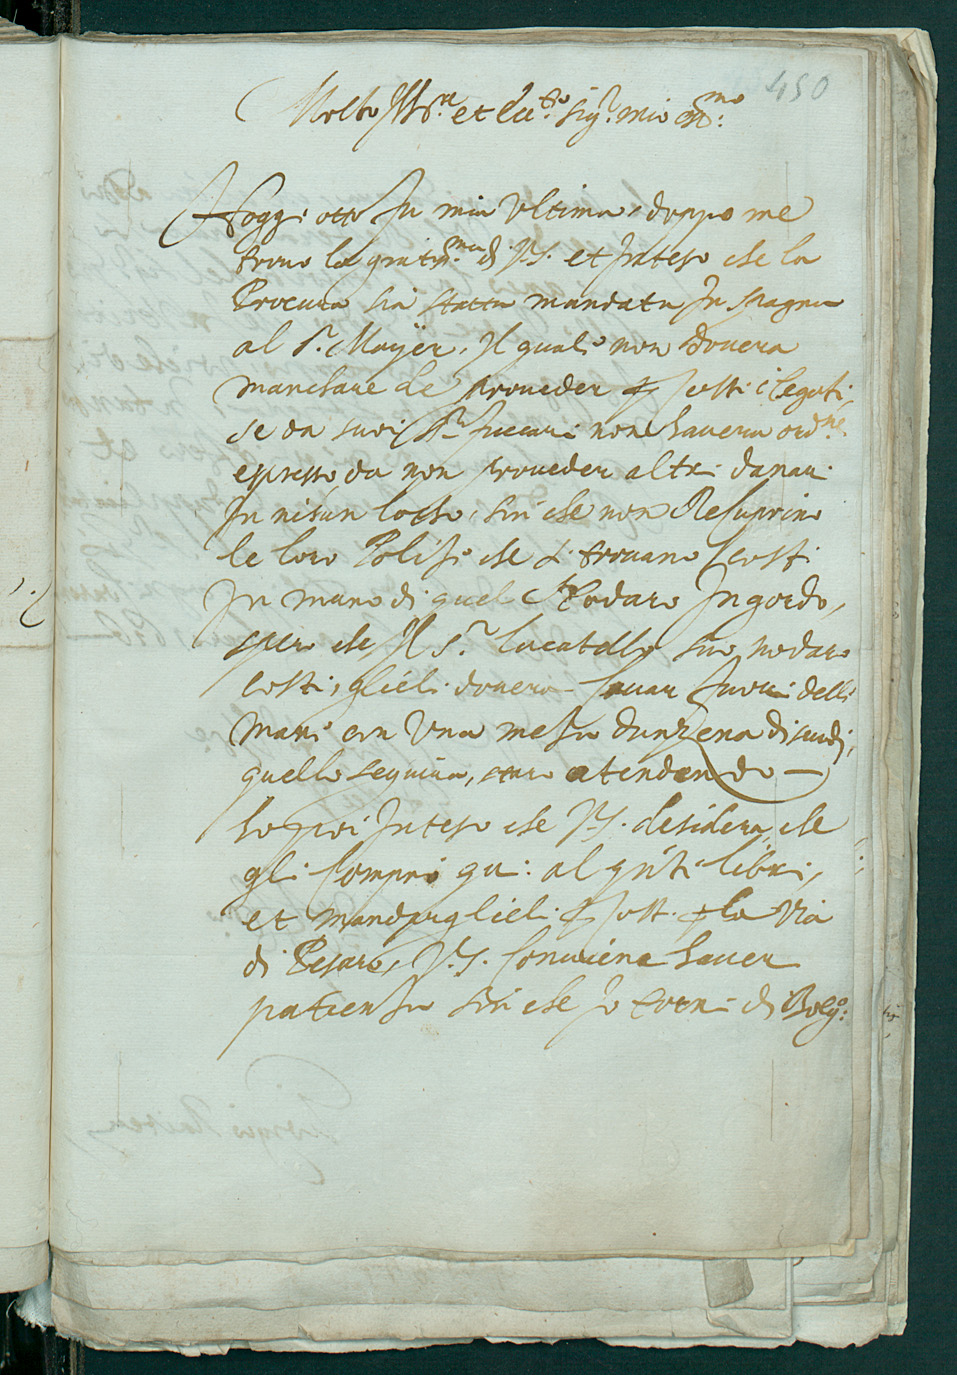 450
Molto Ill.re et Ecc.mo Sig.r mio oss.mo
Hoggi otto fu mia Ultima, doppo me
trovo la gratis.ma di V.S. et Inteso che la
Procura sia statta mandata In spagna
al S.r Mayer, Il quale non dovera
manchare de proveder costi i legati,
se da suoi S.ri fuccari non havera ord.ne
espresso da non proveder altri danari
In nisun locho, sin che non Recuprino
le loro Polise che si trovano costi
In mano di quel Nodaro Ingordo,
spero che Il S.r Locatello suo nodaro
costi, glieli dovera cavar fuori delli
mani con Una mesa dunzena di scudi,
quello seguira, staro atendendo —
ho poi Inteso che V.S. desidera che
gli Compri qui alquanti libri,
et mandarglieli costi p la Via
di Pesaro, V.S. Conviene haver
patienza sin che Io torni di Bolg.o: